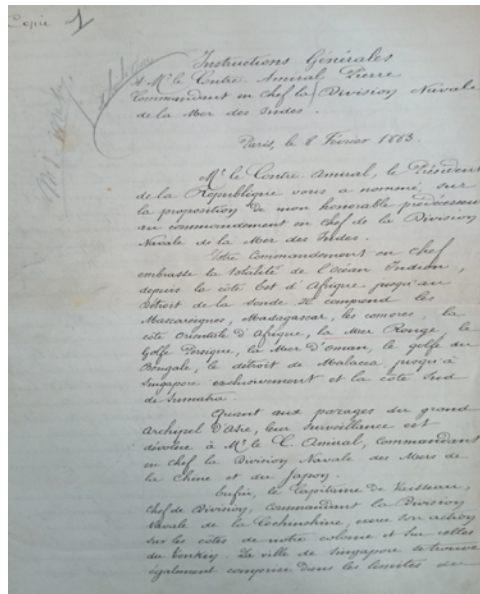 Copie 1
Instructions Générales
A Mr. le Contre. Amiral Pierre
Commandant en Chef la Division Navale
de la Mer des Indes.
Paris, le 8 Février 1883.
Mr. le Contre-amiral, le Président
de la République vous a nommé, sur
la proposition de mon honorable prédécesseur
au commandement en Chef de la Division
Navale de la Mer des Indes.
Votre Commandement en Chef
embrasse la totalité de l'Océan Indien,
depuis la côte Est d'Afrique jusqu'au
Détroit de la Sonde. Il comprend les
Mascareignes, Madagascar, les Comores, la
côte Orientale d'Afrique, la Mer Rouge, le
Golfe Persique, la Mer d'Oman, le golfe du
Bengale, le détroit de Malacca jusqu'à
Singapore exclusivement et la côte Sud
de Sumatra.
Quant aux parages du grand
Archipel d'Asie, leur surveillance est
dévolue à Mr. le C. Amiral, commandant
en chef la Division Navale des Mers de
la Chine et du Japon.
Enfin, le Capitaine de Vaisseau,
Chef de Division, commandant la Division
Navale de la Cochinchine, exerce son action
sur les côtes de notre colonie et sur celles
du Tonkin. La ville de Singapore se trouve
également comprise dans les limites de